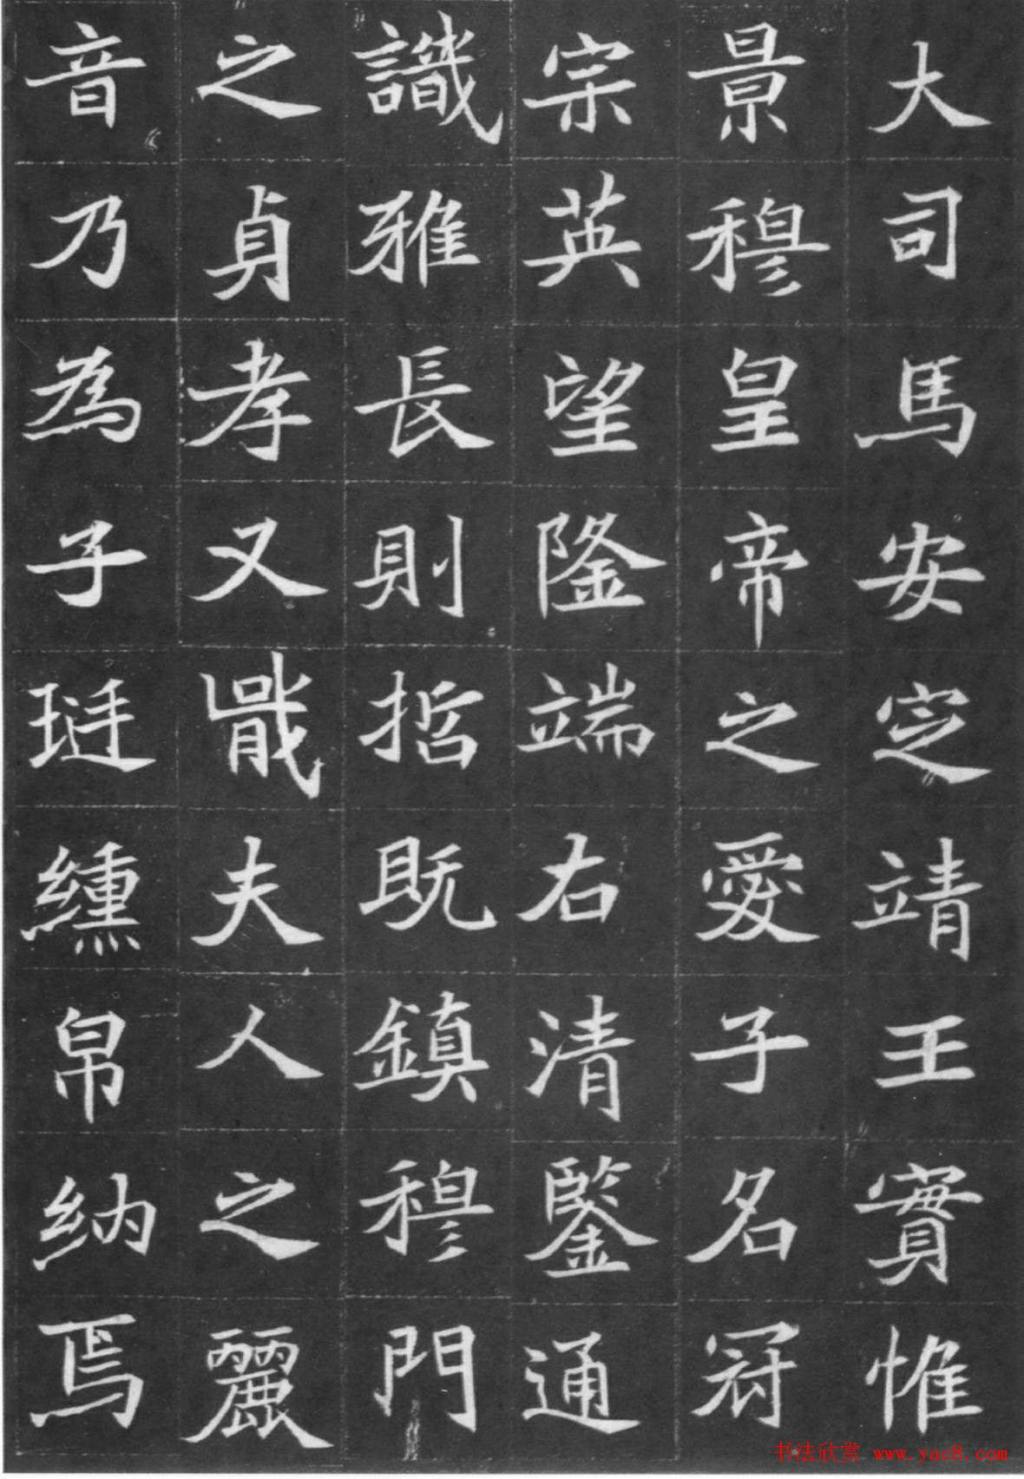 大司馬安定靖王實惟
景穆皇帝之愛子名冠
宗英望隆端右清鑒通
識雅長則哲既鎮穆門
之貞孝又戩夫人之麗
音乃為子琁纁帛納焉
书法欣赏 www.yac8.com